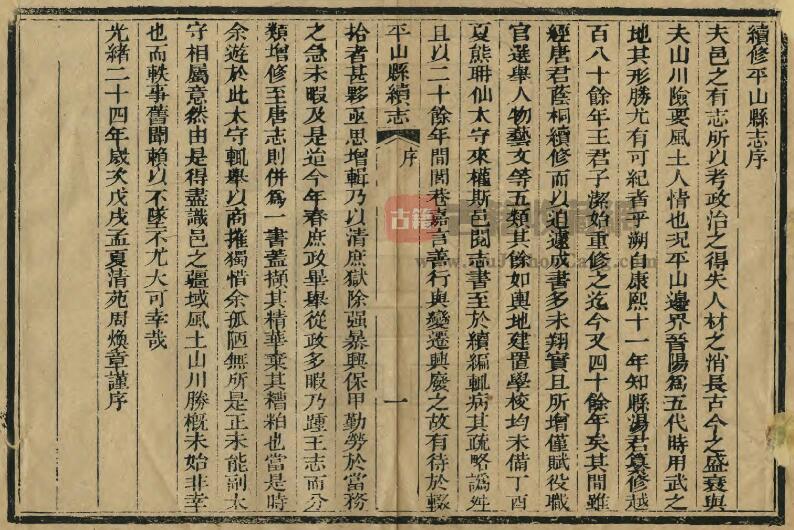 續修平山縣志序
夫邑之有志所以考政治之得失人材之消長古今之盛衰與
夫山川險要風土人情也况平山邊界晉陽爲五代時用武之
地其形勝尤有可紀者乎溯自康熙十一年知縣湯君纂修越
百八十餘年王君子潔始重修之迄今又四十餘年矣其間雖
經唐君蔭桐續修而以迫遽成書多未翔實且所增僅賦役職
官選舉人物藝文等五類其餘如輿地建置學校均未備丁酉
夏熊珊仙太守來權斯邑閱志書至於續編輒病其疏略譌舛
且以二十餘年間閭巷嘉言善行與變遷興廢之故有待於輟
平山縣續志 序 一
拾者甚夥亟思增輯乃以清庶獄除强暴興保甲勤勞於當務
之急未暇及是迨今年春庶政畢舉從政多暇乃踵王志而分
類增修至唐志則併爲一書蓋擷其精華棄其糟粕也當是時
余遊於此太守輒舉以商搉獨惜余孤陋無所是正未能副太
守相屬意然由是得盡識邑之疆域風土山川勝概未始非幸
也而軼事舊聞賴以不墜不尤大可幸哉
光緒二十四年歲次戊戌孟夏清苑周煥章謹序
古籍